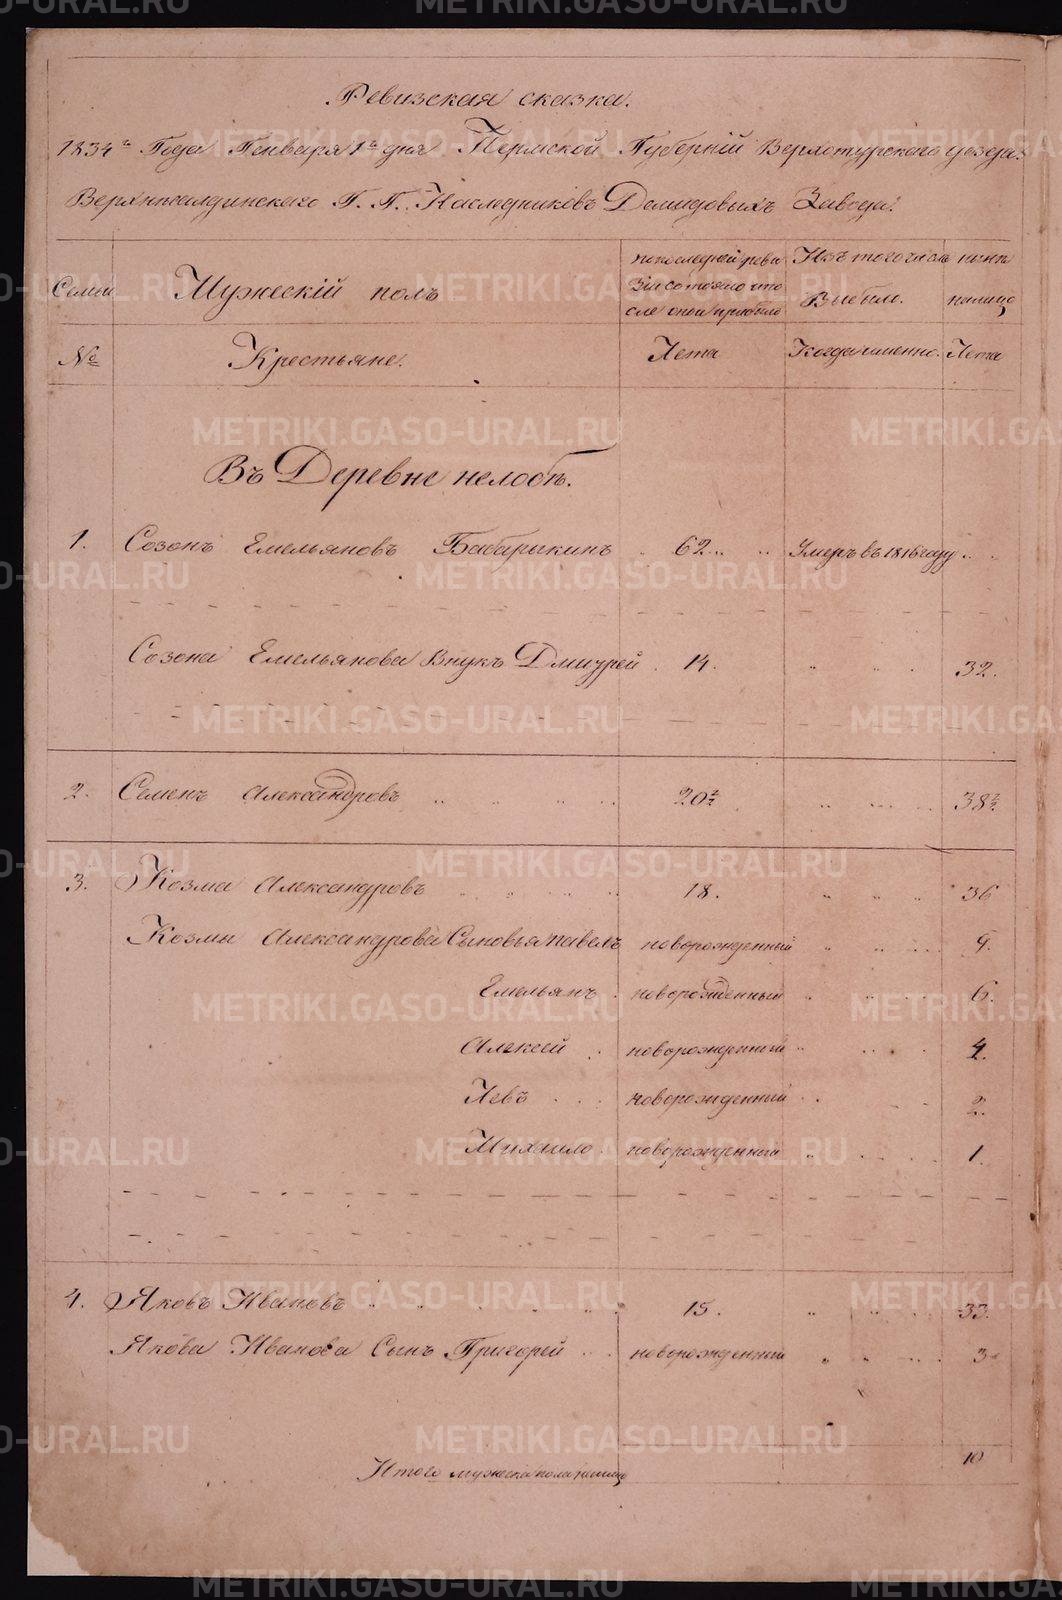 Ревизская сказка.
1834го Года Генваря 1го дня Пермской Губерніи Верхотурскаго уезда.
Верхнесалдинскаго Г. Г. Наследниковъ Демидовыхъ Завода.
Семьи Мужескій полъ по последней реви Изъ того числа ныне
зіи состояло и по Выбыли. налицо
сле оной прибыло
№ Крестьяне. Лета Когда именно. Лета
Въ Деревне Нелобе.
1. Созонъ Емельяновъ Бабарыкинъ 62 Умеръ въ 1816 году
Созона Емельянова Внукъ Дмитрей 14. 32.
2. Семенъ Александровъ 20½ 38½
3. Козма Александровъ 18. 36
Козмы Александрова Сыновья Павелъ новорожденный 9.
Емельянъ новорожденный 6.
Алексей новорожденный 4.
Левъ новорожденный 2.
Михаило новорожденный 1.
4. Яковъ Ивановъ 15. 33.
Якова Иванова Сынъ Григорей новорожденный 3
10
Итого мужеска пола налицо
METRIKI.GASO-URAL.RU